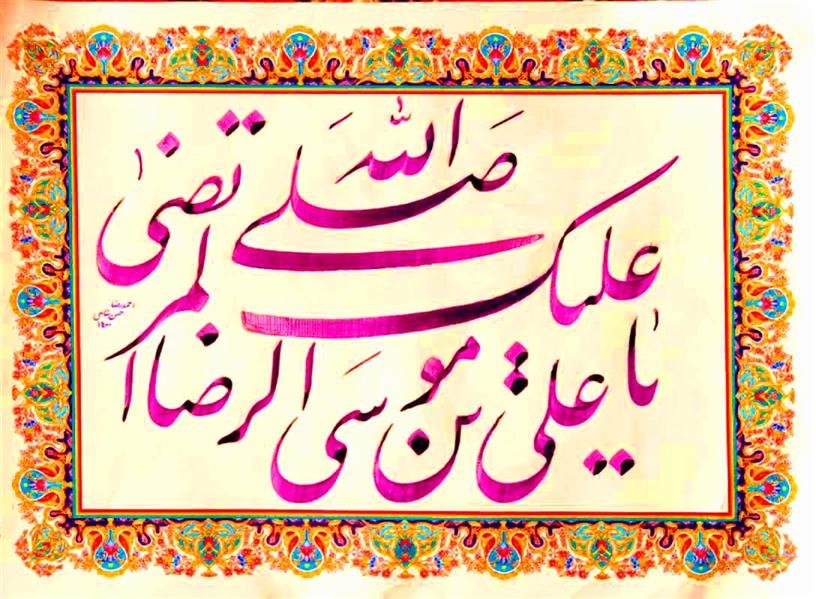 صلی الله
علیک
یا علی بن موسی الرضا المرتضی
احمدرضا
۱۴۰۰